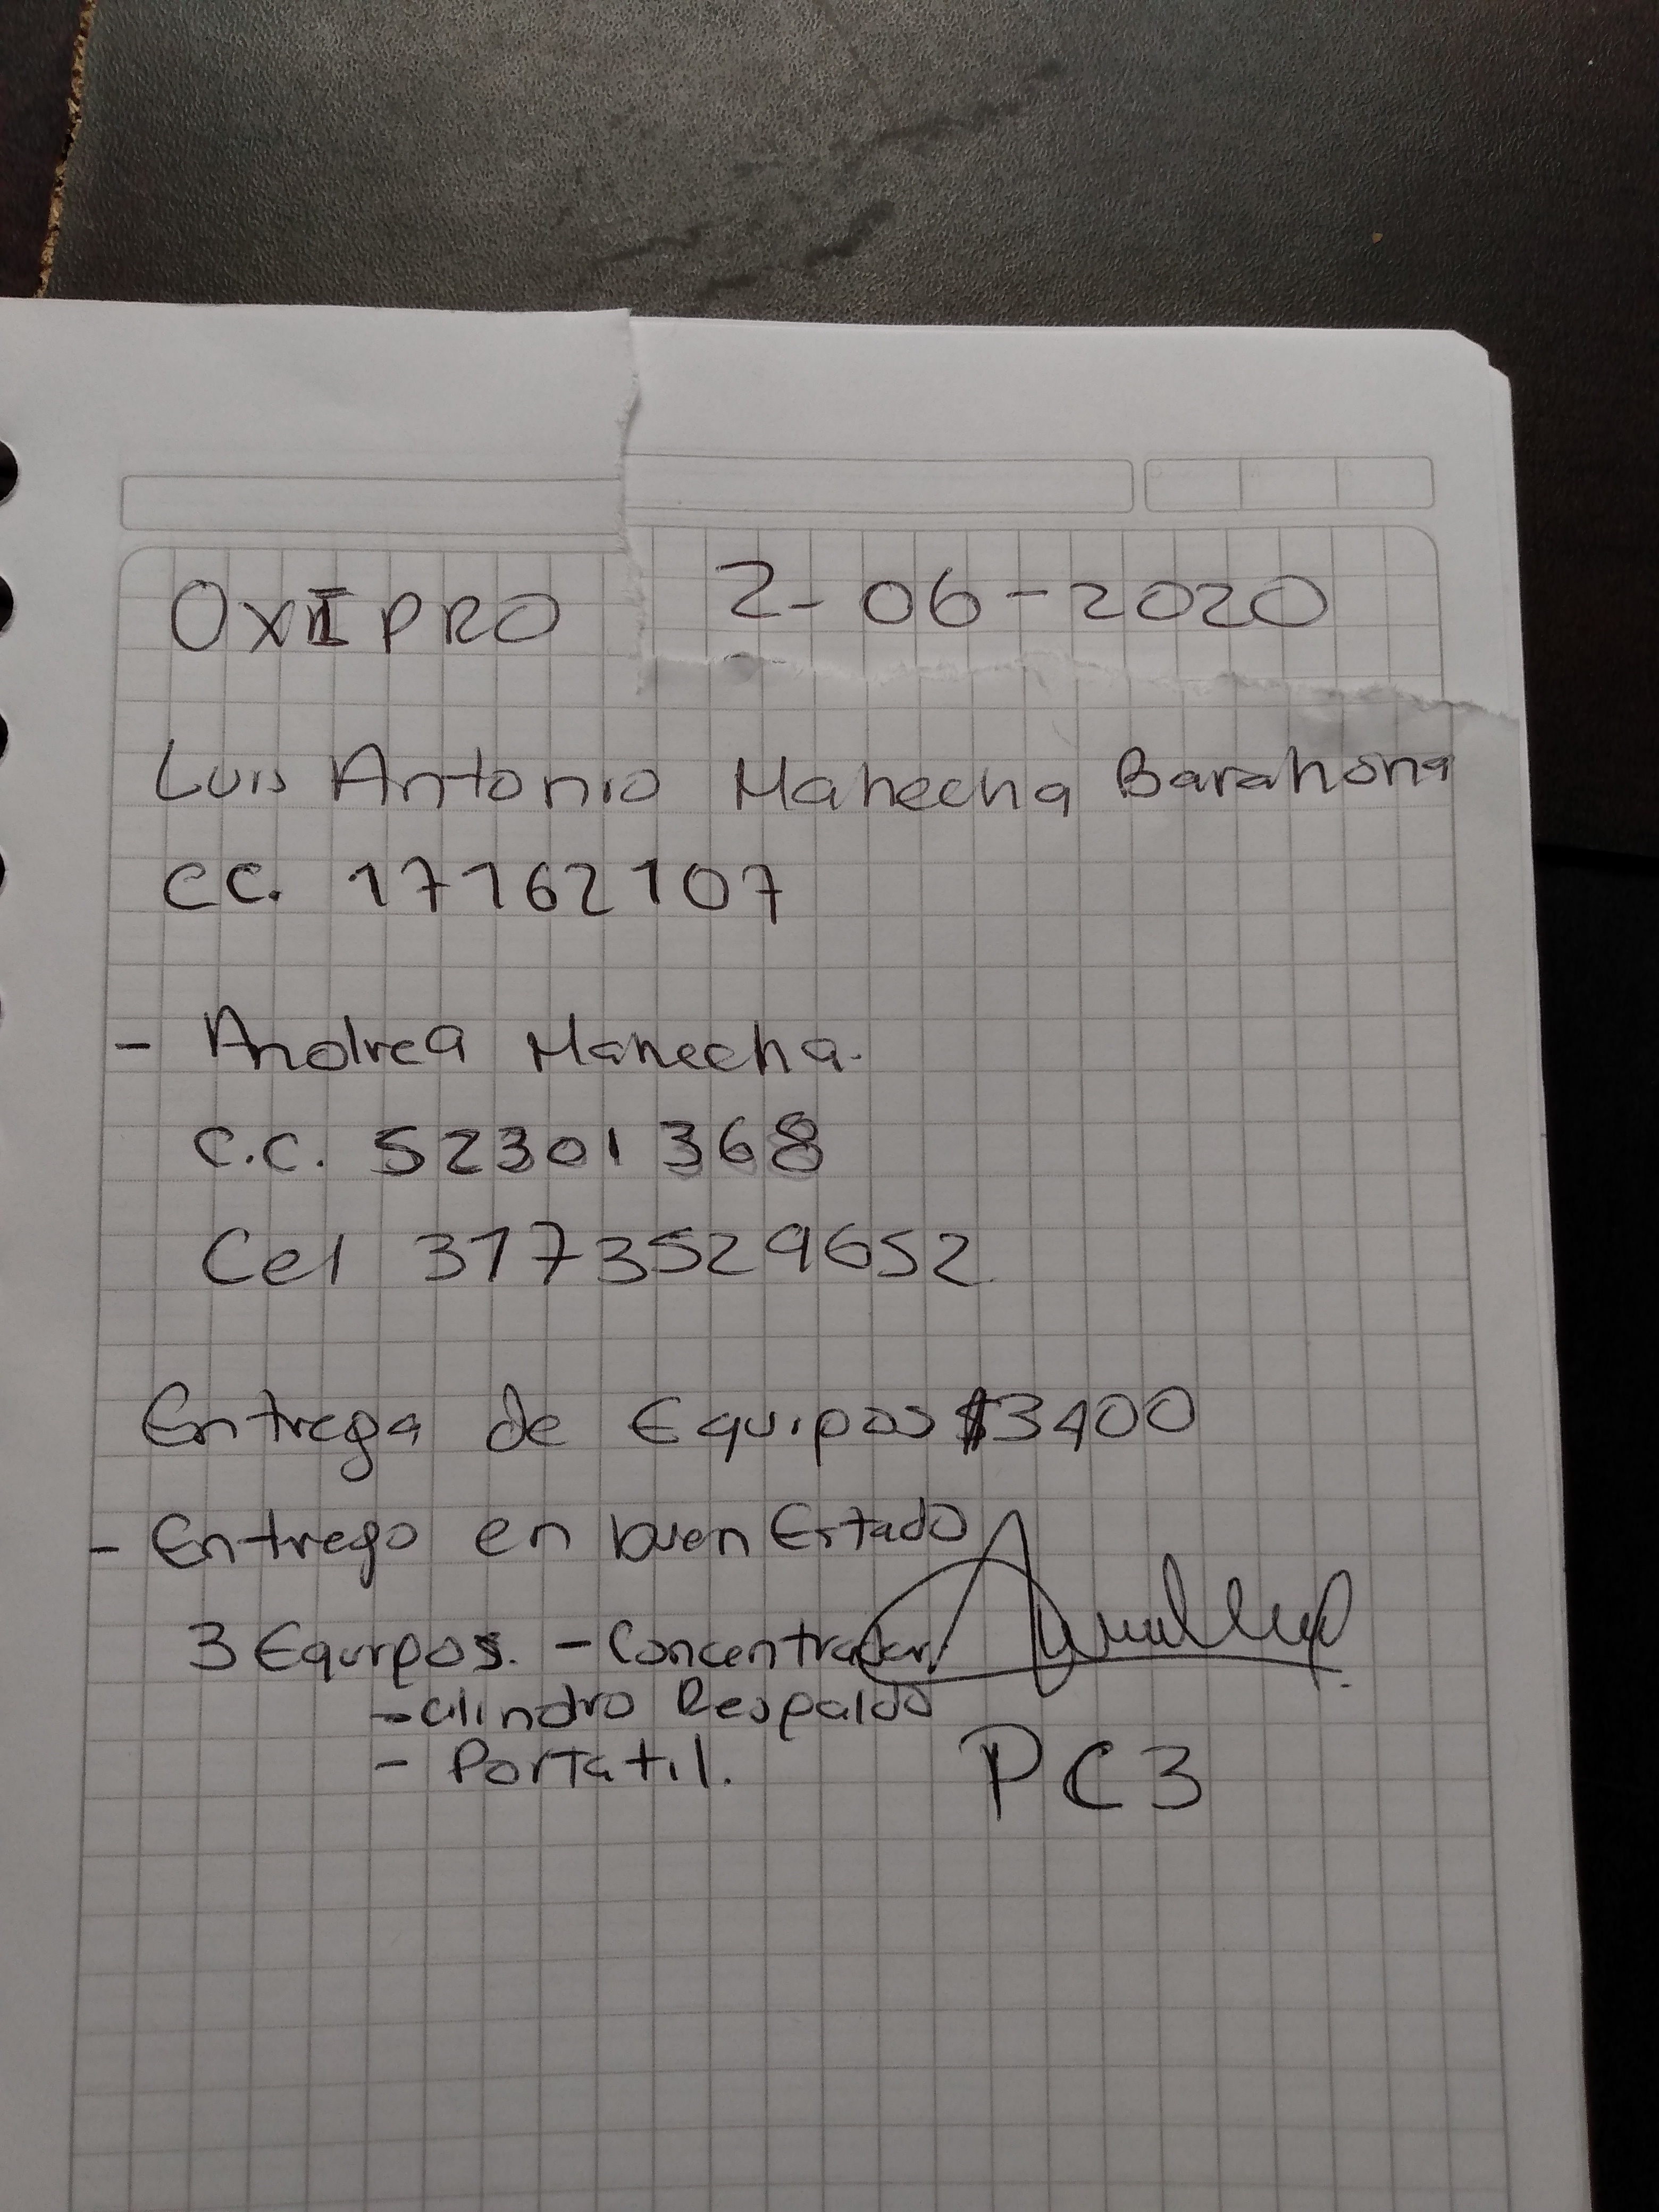 OXIPRO 2-06-2020
Luis Antonio Mahecha Barahona
CC. 17162107
- Andrea Mahecha.
C.C. 52301368
Cel 3173529652
Entrega de Equipos $3400
- Entrego en buen Estado
3 Equipos. - Concentrador
- Cilindro Respaldo
- Portatil.
PC3